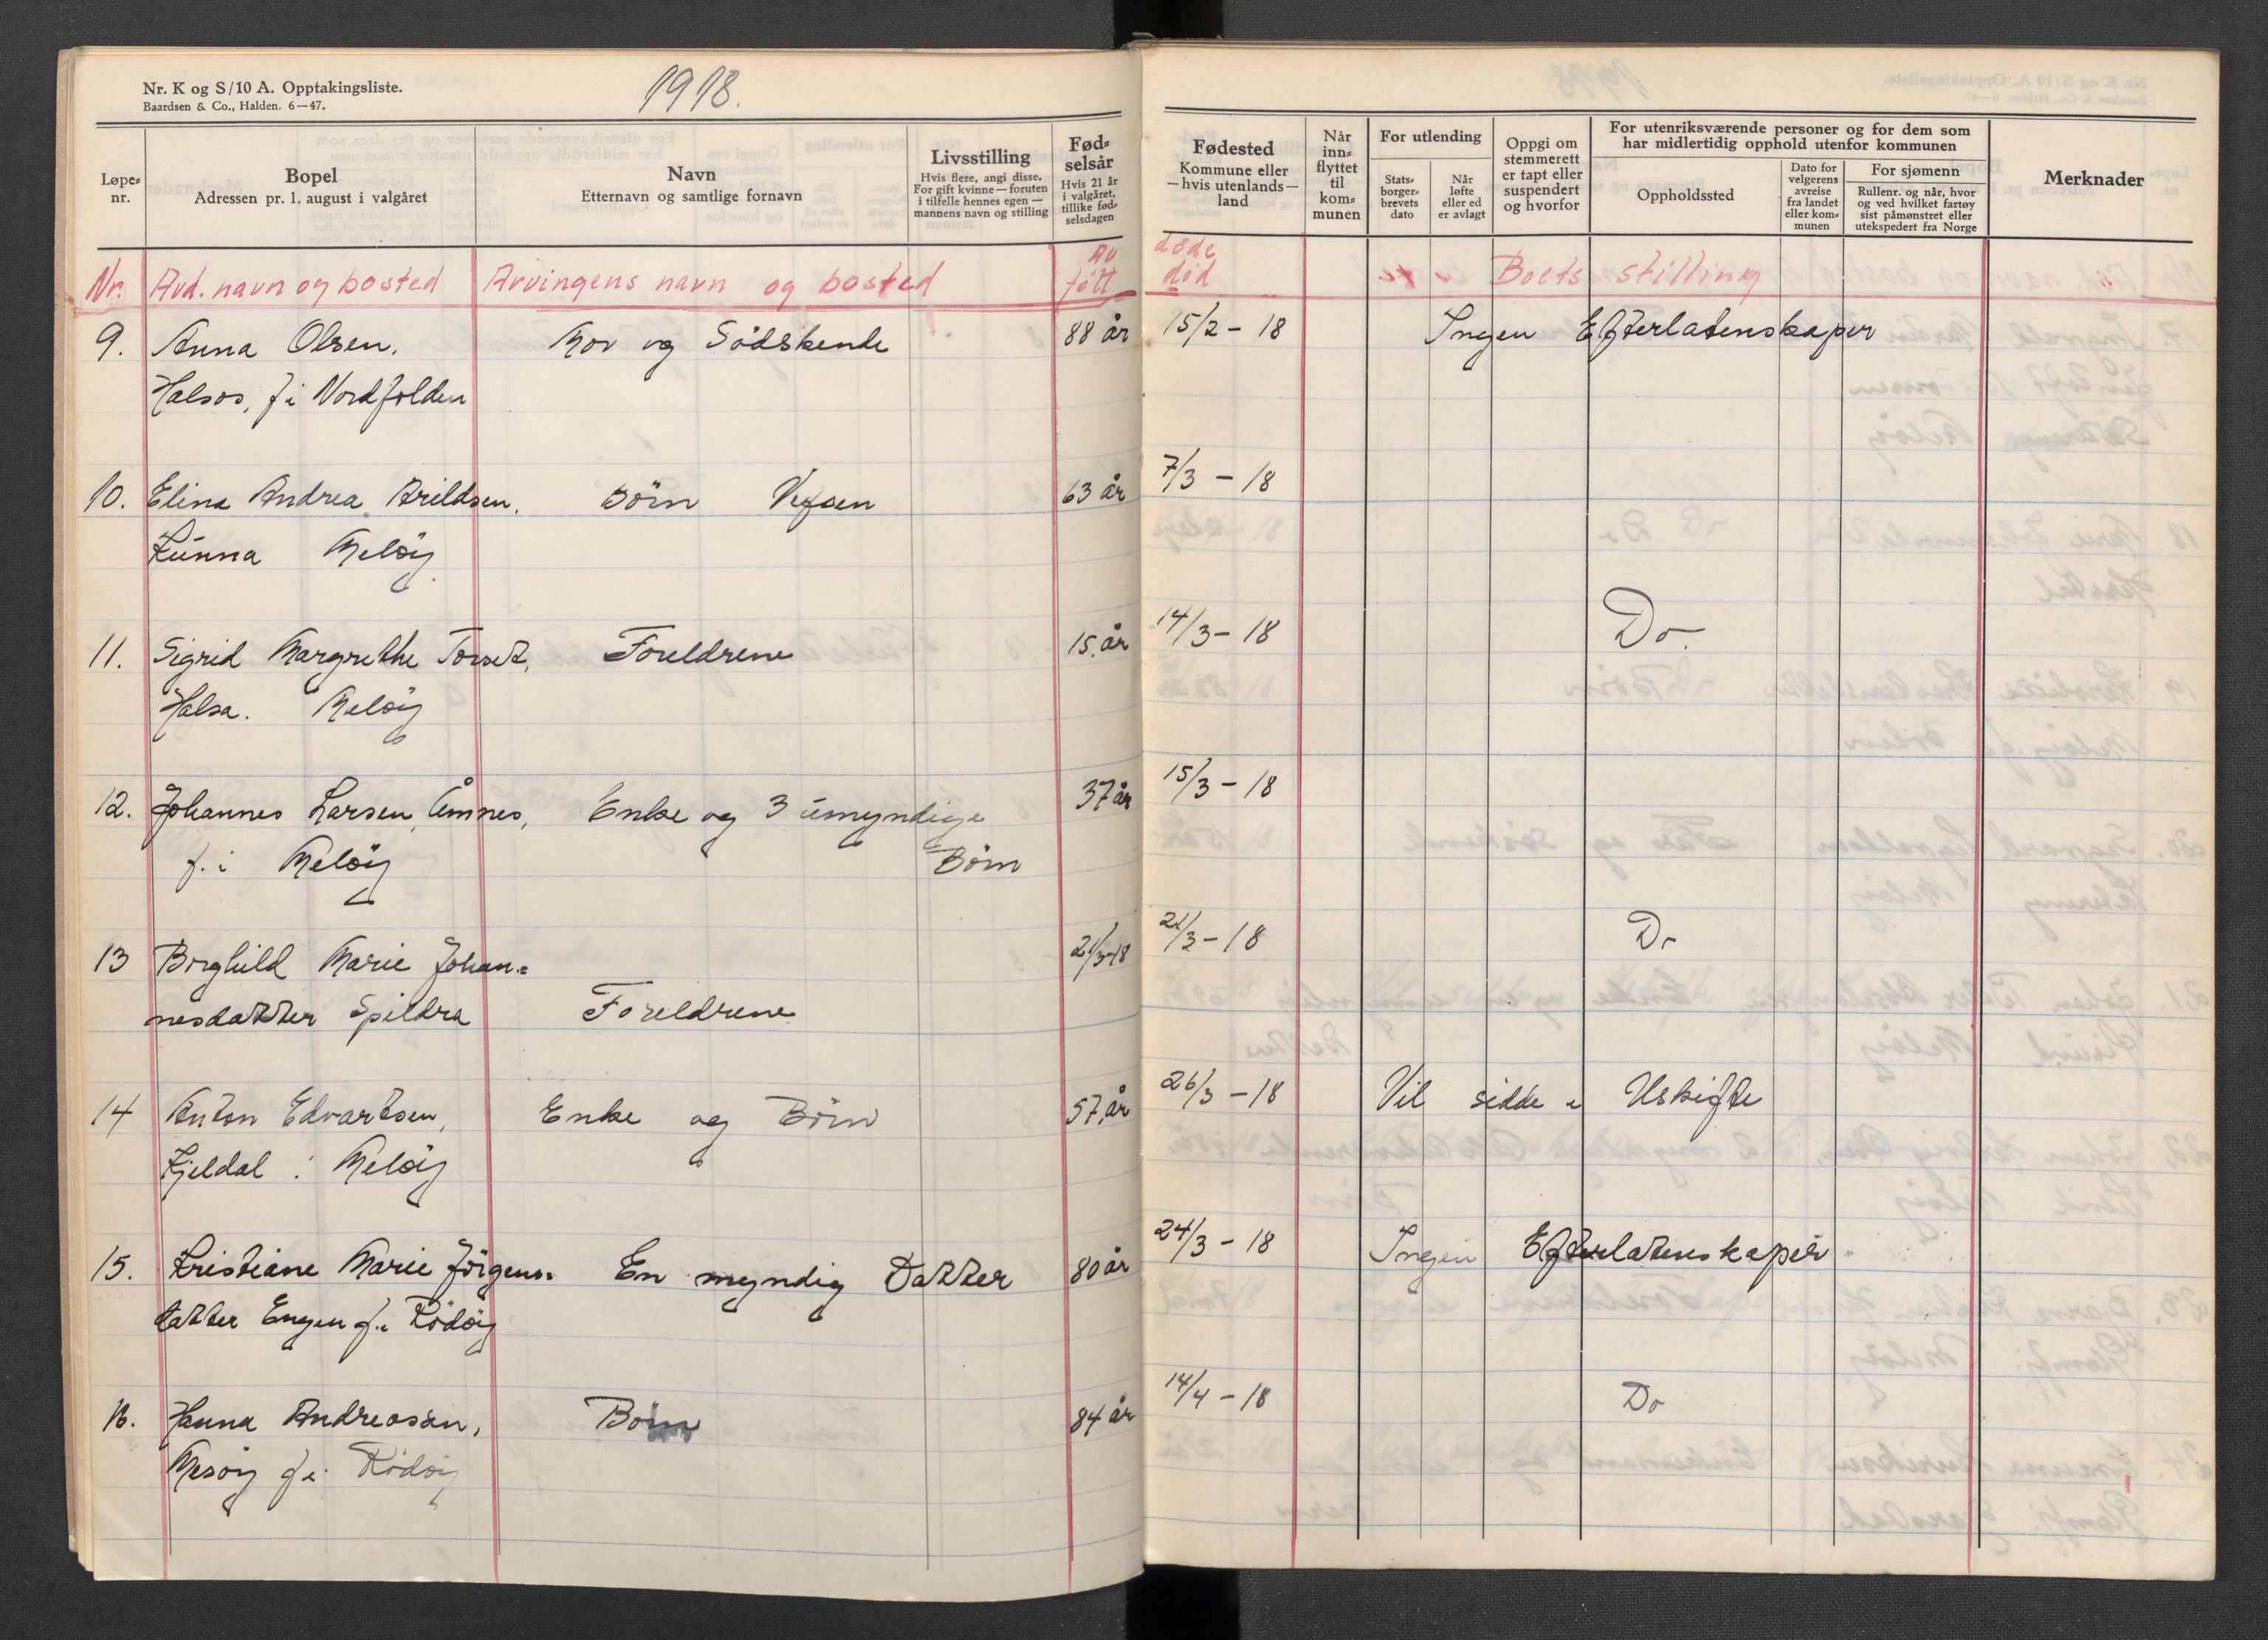 Nr. K og S/10 A. Opptakingsliste.
Baardsen & Co., Halden. 6—47.
1918.
Løpe-nr.
Bopel
Adressen pr. 1. august i valgåret
Navn
Etternavn og samtlige fornavn
Livsstilling
Hvis flere, angi disse.
For gift kvinne — foruten
i tilfelle hennes egen —
mannens navn og stilling
Fød-
selsår
Hvis 21 år
i valgåret,
tillike fød-
selsdagen
Fødested
Kommune eller
—hvis utenlands—
land
Når
inn-
flyttet
til
kom-
munen
For utlending
Stats-
borger-
brevets
dato
Når
løfte
eller ed
er avlagt
Oppgi om
stemmerett
er tapt eller
suspendert
og hvorfor
For utenriksværende personer og for dem som
har midlertidig opphold utenfor kommunen
Oppholdssted
Dato for
velgerens
avreise
fra landet
eller kom-
munen
For sjømenn
Rullenr. og når, hvor
og ved hvilket fartøy
sist påmønstret eller
utekspedert fra Norge
Merknader
Nr. Avd. navn og bosted Arvingens navn og bosted Av døde
født død Boets stilling
9. Anna Olsen, Mor og Södskende 88 år 15/2 - 18 Ingen Efterlatenskaper
Halsos, f i Nordfolden
10. Elina Andrea Arildsen, Börn Vefsen 63 år 7/3 - 18
Kunna Melöy
11. Sigrid Margrethe Torset, Foreldrene 15. år 14/3 - 18 Do.
Halsa. Melöy
12. Johannes Larsen, Åmnes, Enke og 3 umyndige 37 år 15/3 - 18
f. i Melöy Börn
13 Borghild Marie Johan- 21/3-18 21/3 - 18 Do
nesdatter Spildra Foreldrene
14 Anton Edvartsen, Enke og Börn 57. år 26/3 - 18 Vil sidde i Uskifte
Kjeldal i Melöy
15. Kristiane Marie Jörgens- En myndig Datter 80 år 24/3 - 18 Ingen Efterlatenskaper
datter Engen f. i Rödöy
16. Hanna Andreassen, Börn 84 år 14/4 - 18 Do
Mesöy f i Rödöy